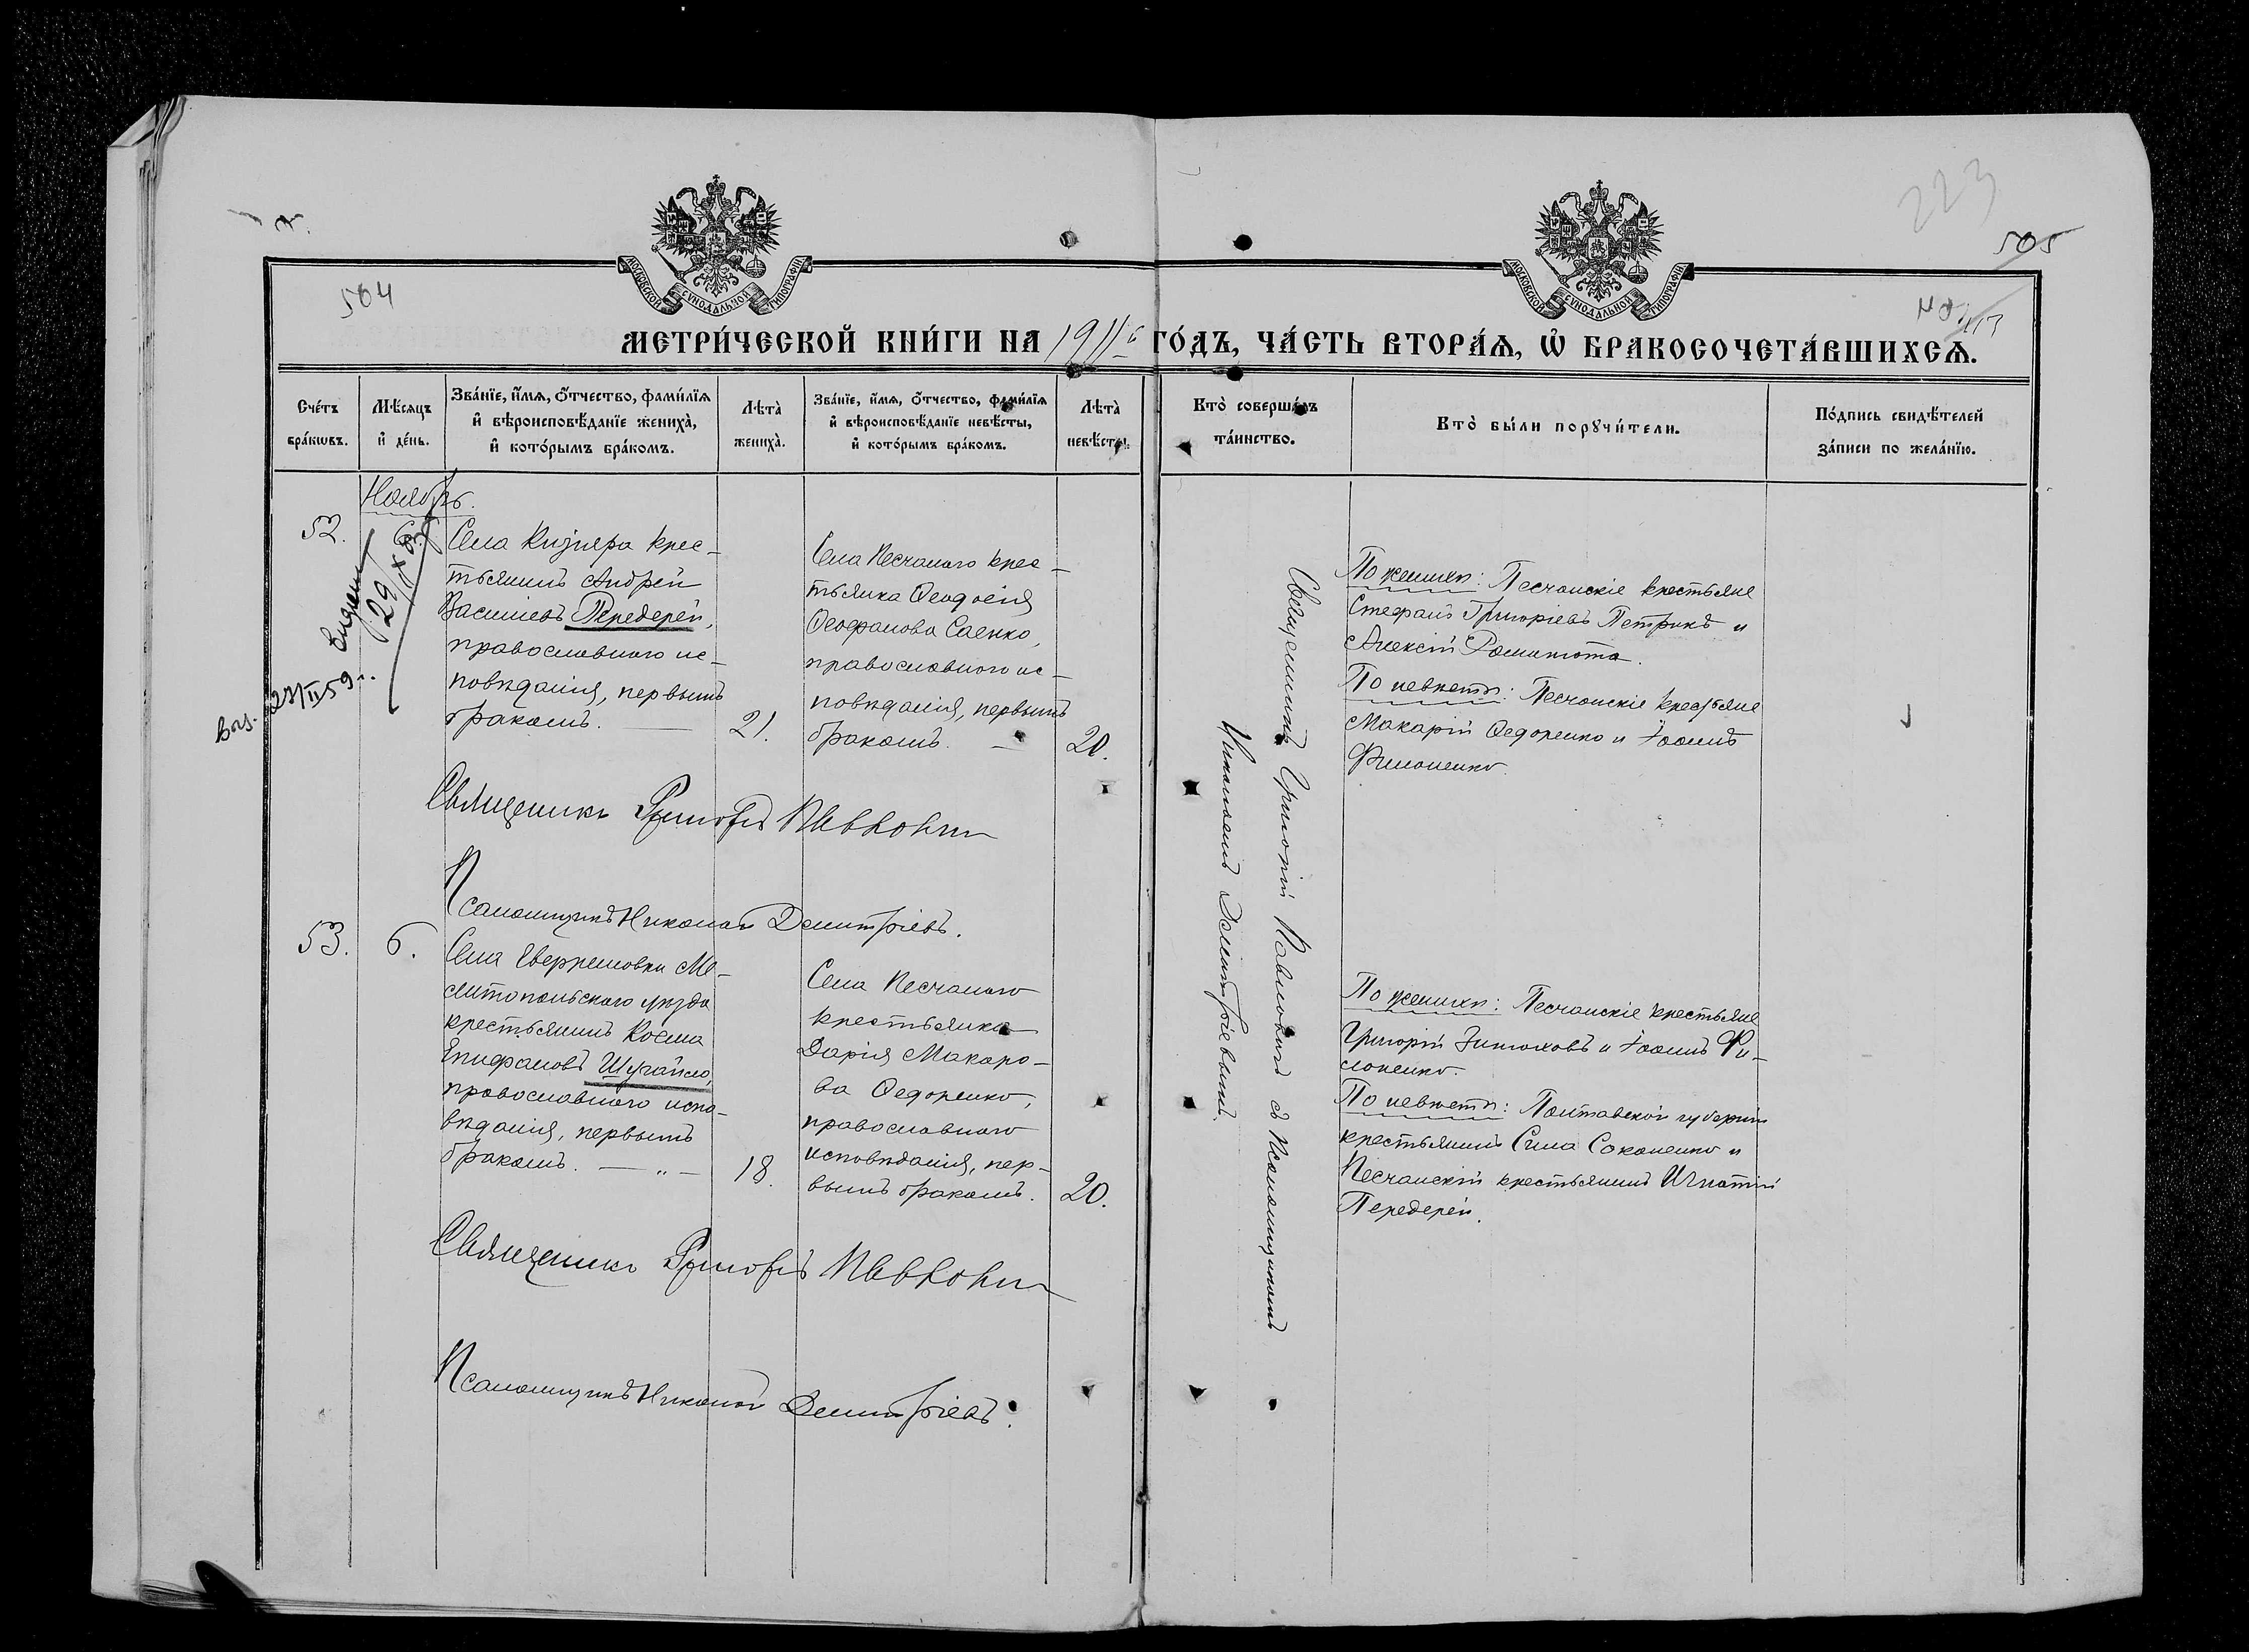 504
223
505
МОСКОВСКОЙ СѴНОДАЛЬНОЙ ТИПОГРАФІИ
МОСКОВСКОЙ СѴНОДАЛЬНОЙ ТИПОГРАФІИ
МЕТРИ́ЧЕСКОЙ КНИ́ГИ НА 1911 ГО́ДЪ, ЧА́СТЬ ВТОРА́Ѧ, Ѡ҆ БРАКОСОЧЕТА́ВШИХСѦ.
Сче́тъ бра́кѡвъ.
Мѣ́сяцъ и҆ де́нь.
Зва́нїе, и҆́мя, ѻ҆́тчество, фами́лїя и҆ вѣроисповѣ́данїе жениха̀, и҆ кото́рымъ бра́комъ.
Лѣта̀ жениха̀.
Зва́нїе, и҆́мя, ѻ҆́тчество, фами́лїя и҆ вѣроисповѣ́данїе невѣ́сты, и҆ кото́рымъ бра́комъ.
Лѣта̀ невѣ́сты.
Кто̀ соверша́лъ та́инство.
Кто̀ бы́ли порꙋчи́тели.
По́дпись свидѣ́телей за́писи по жела́нїю.
Ноябрь.
52.
6.
Села Кизіяра крес-
тьянинъ Андрей
Васильевъ Передерей,
православнаго ис-
повѣданія, первымъ
бракомъ. —
21.
Села Песчанаго крес-
тьянка Ѳеодосія
Ѳеофанова Саенко,
православнаго ис-
повѣданія, первымъ
бракомъ. —
20.
27/II 59 г.
Священникъ Григорій Павловичъ съ Псаломщикомъ
Николаемъ Димитріевымъ.
По женихѣ: Песчанскіе крестьяне
Стефанъ Григоріевъ Петрикъ и
Алексій
По невѣстѣ: Песчанскіе крестьяне
Макарій Ѳедоренко и Іоаннъ
Филоненко.
Священникъ Григорій Павловичъ
Псаломщикъ Николай Димитріевъ.
53.
6.
Села Ме-
литопольскаго уѣзда
крестьянинъ Косма
Епифановъ Шугайло,
православнаго испо-
вѣданія, первымъ
бракомъ. — „ —
18.
Села Песчанаго
крестьянка
Дарія Макаро-
ва Ѳедоренко,
православнаго
исповѣданія, пер-
вымъ бракомъ.
20.
По женихѣ: Песчанскіе крестьяне
Григорій и Іоаннъ Фи-
лоненко.
По невѣстѣ: Полтавской губерніи
крестьянинъ Сила Соколенко и
Песчанскій крестьянинъ Игнатій
Передерей.
Священникъ Григорій Павловичъ
Псаломщикъ Николай Димитріевъ.